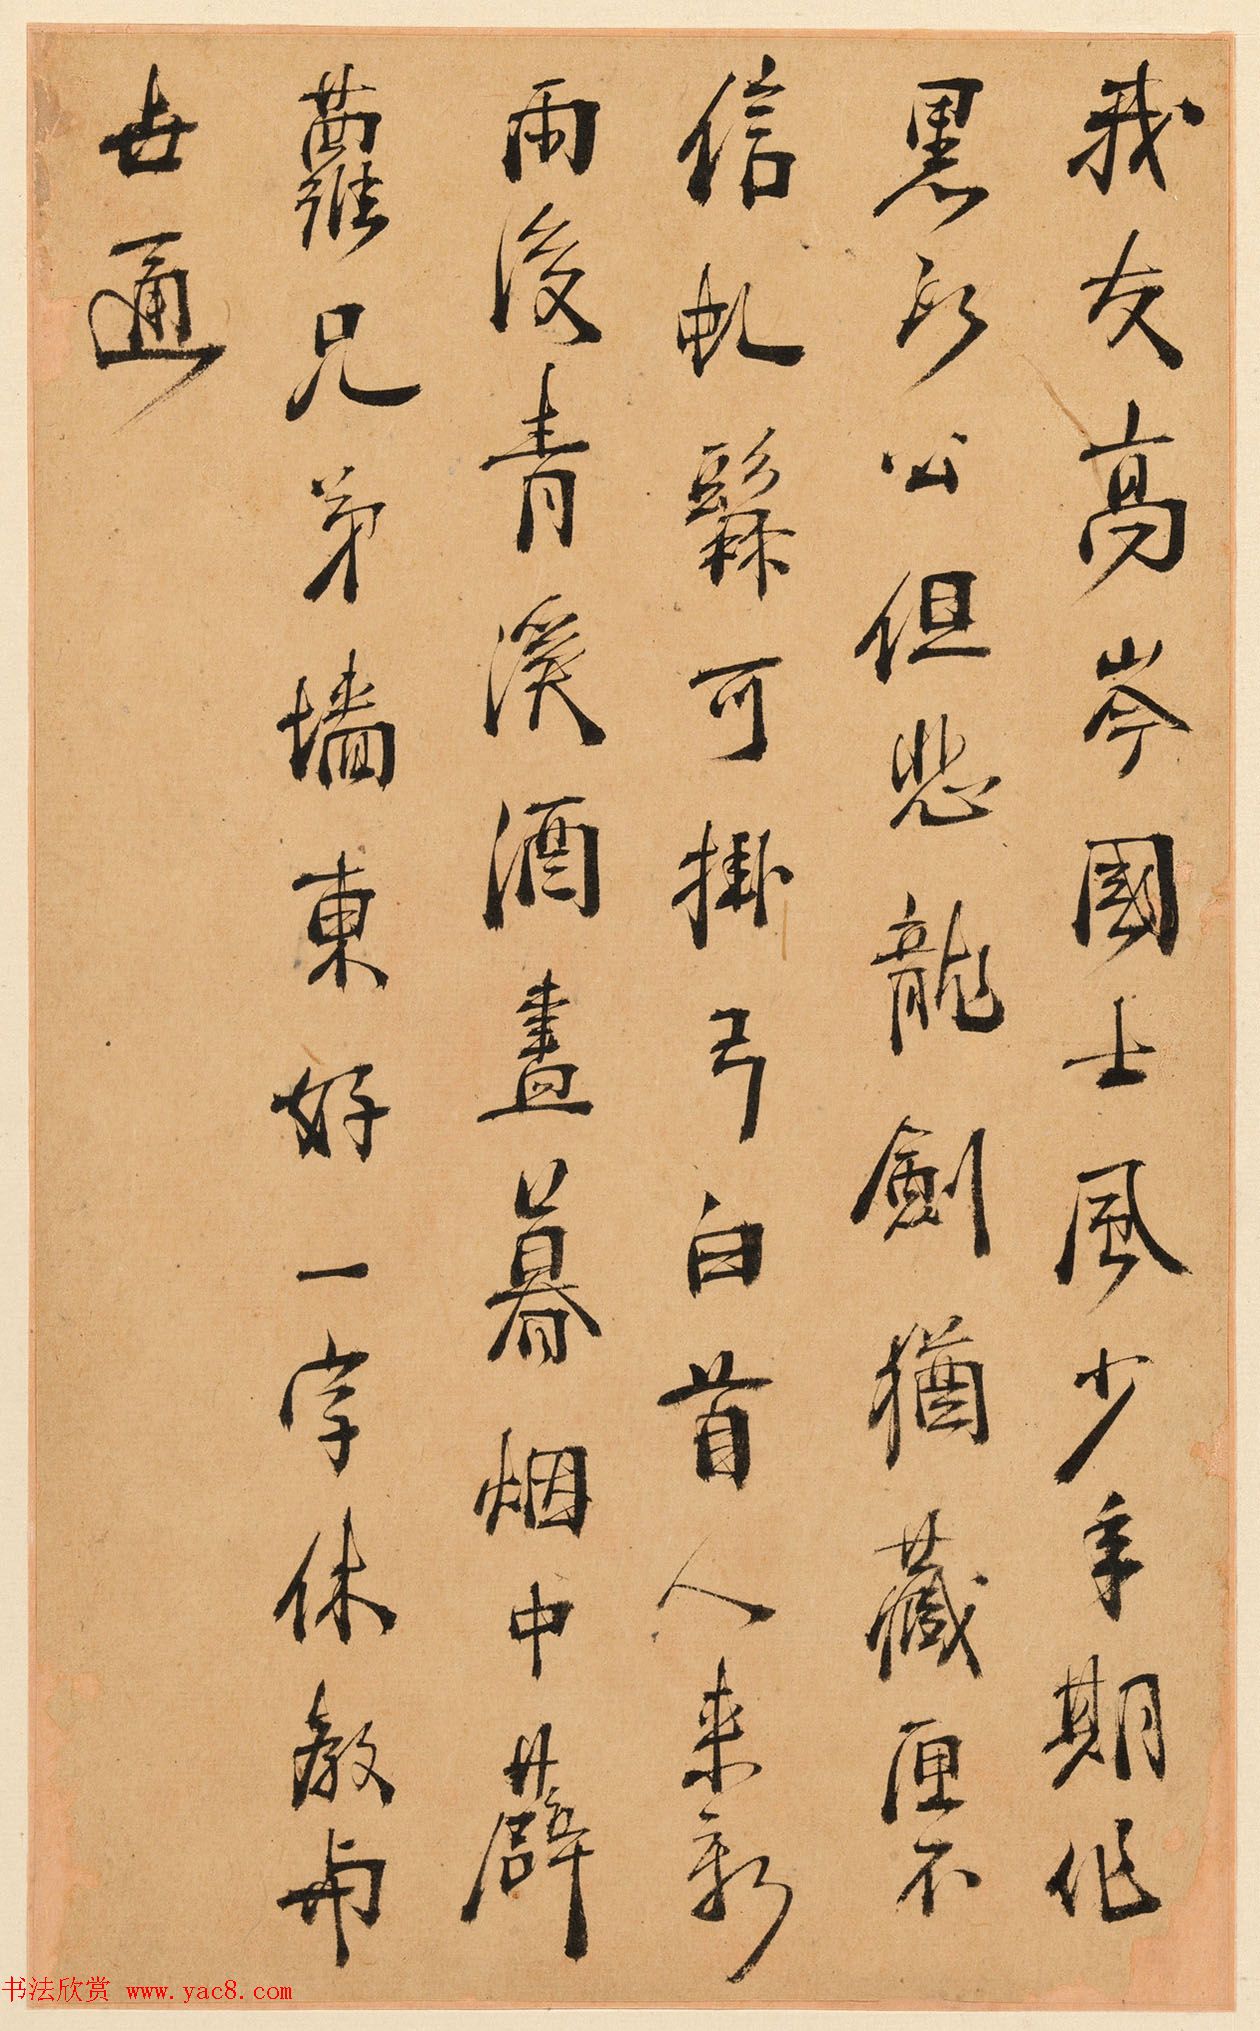 我友高岑國士風少年期作
黑頭公但悲龍劍猶藏匣不
信虬鬚可掛弓白首人来新
雨後青溪酒盡暮烟中薜
蘿兄弟墻東好一字休教与
世通
书法欣赏 www.yac8.com